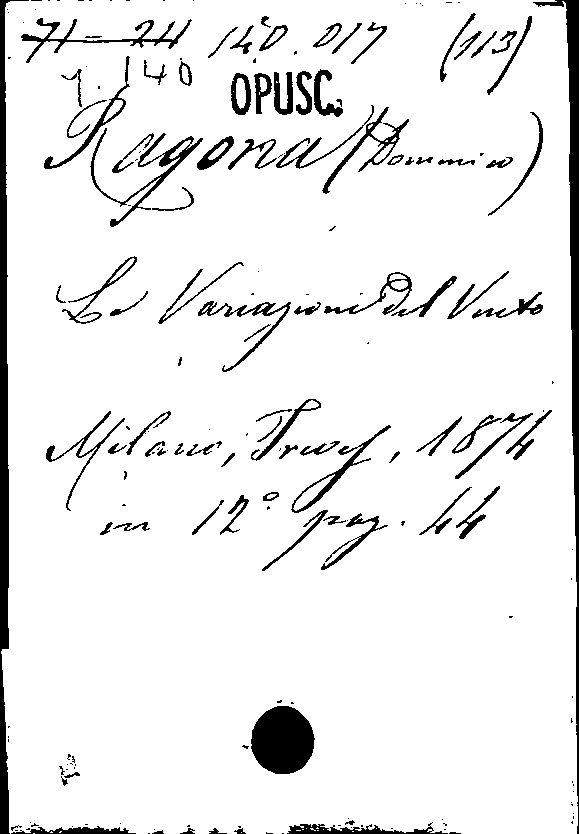 71 = 24 140.017 (113)
y. 140
OPUSC.
Ragona (Domenico)
Le Variazioni del Vento
Milano, Treves, 1874
in 12° pag. 44